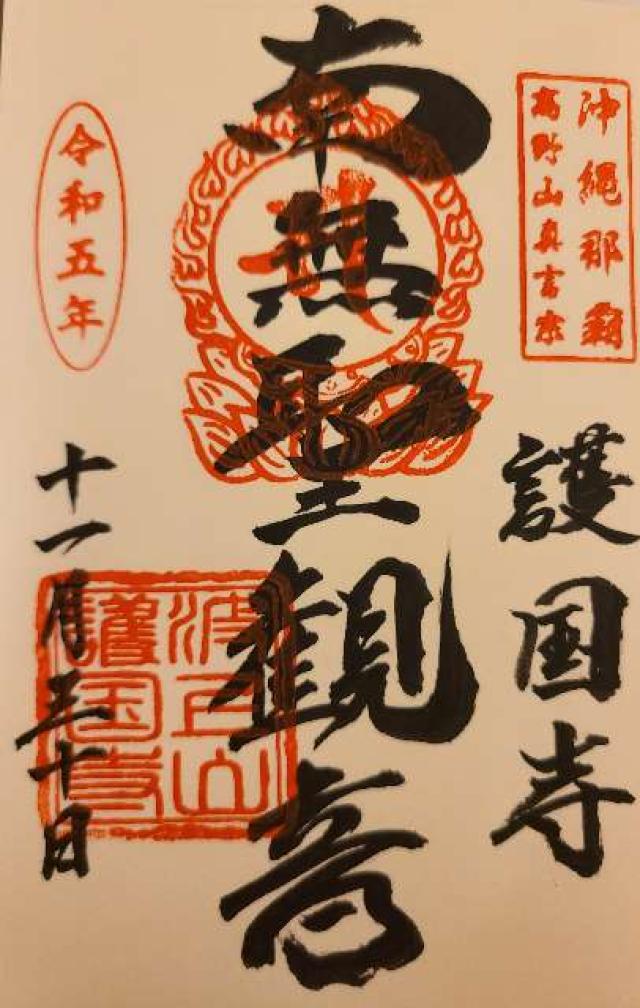 沖縄那覇
高野山真言宗
護国寺
南無聖観音
令和五年
十一月三十日
波上山
護国寺